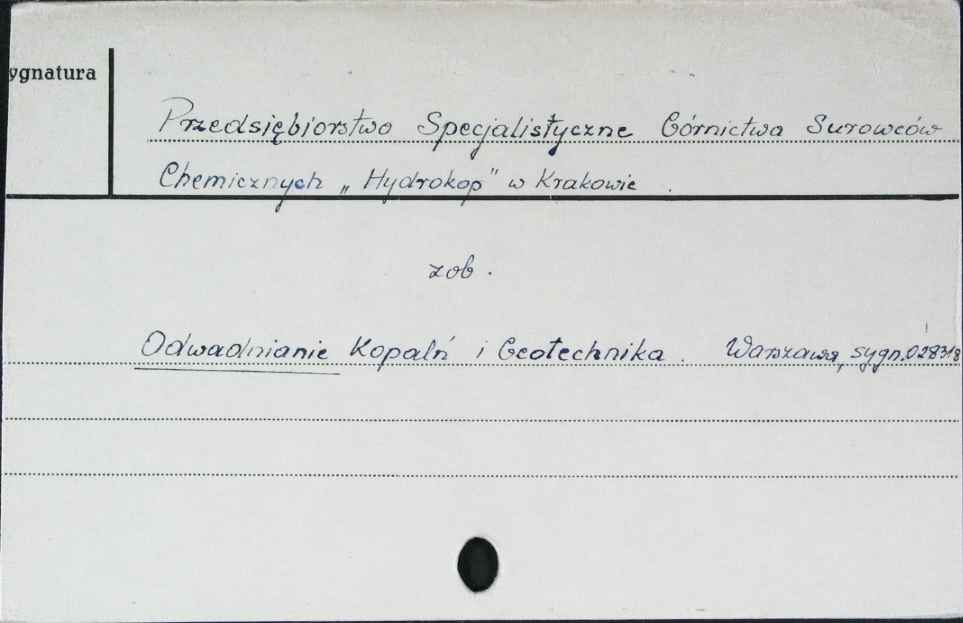 ygnatura
Przedsiębiorstwo Specjalistyczne Górnictwa Surowców
Chemicznych „Hydrokop" w Krakowie.
zob.
Odwadnianie Kopalń i Geotechnika. Warszawa, sygn. 028318